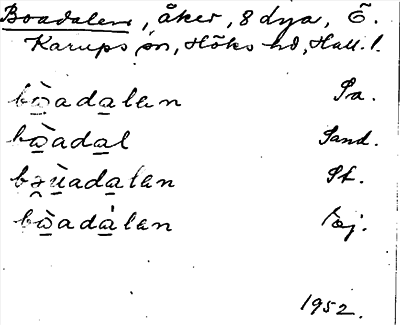 Boadalen, åker, 8 dya, Ö.
Karups sn, Höks hd, Hall. l.
bò̲ada̲lan
bò̲ada̲l Sand.
ada̲lan St.
bò̲ada̲̍lan
1952.